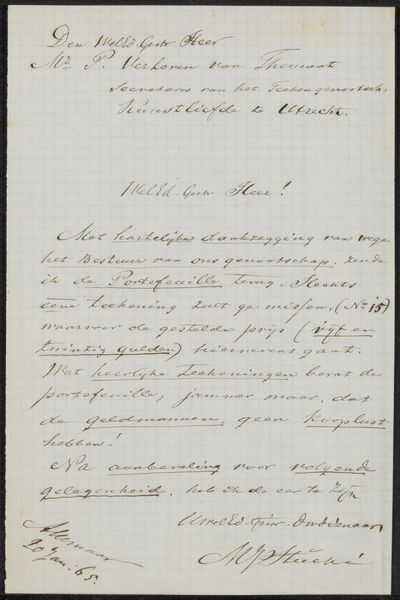 Den WelEd. Gestr Heer
Mr. P. Verloren van Themaat
Secretaris van het Teekengenootsch.
Kunstliefde te Utrecht.
WelEd. Gestr Heer!
Met hartelijke dankzegging van wege
het Bestuur van ons genootschap, zende
ik de Portefeuille terug. Slechts
eene teekening zult ge missen, (No 15)
waarvoor de gestelde prijs (vijf en
twintig gulden) hiernevens gaat.
Wat heerlijke teekeningen bevat de
portefeuille, jammer maar, dat
de geldmannen, geen kooplust
hebben!
Na aanbeveling voor volgende
gelegenheid, heb ik de eer te zijn
UwelEd. Gestr. Dw Dienaar
Alkmaar
20 Jan: 65.